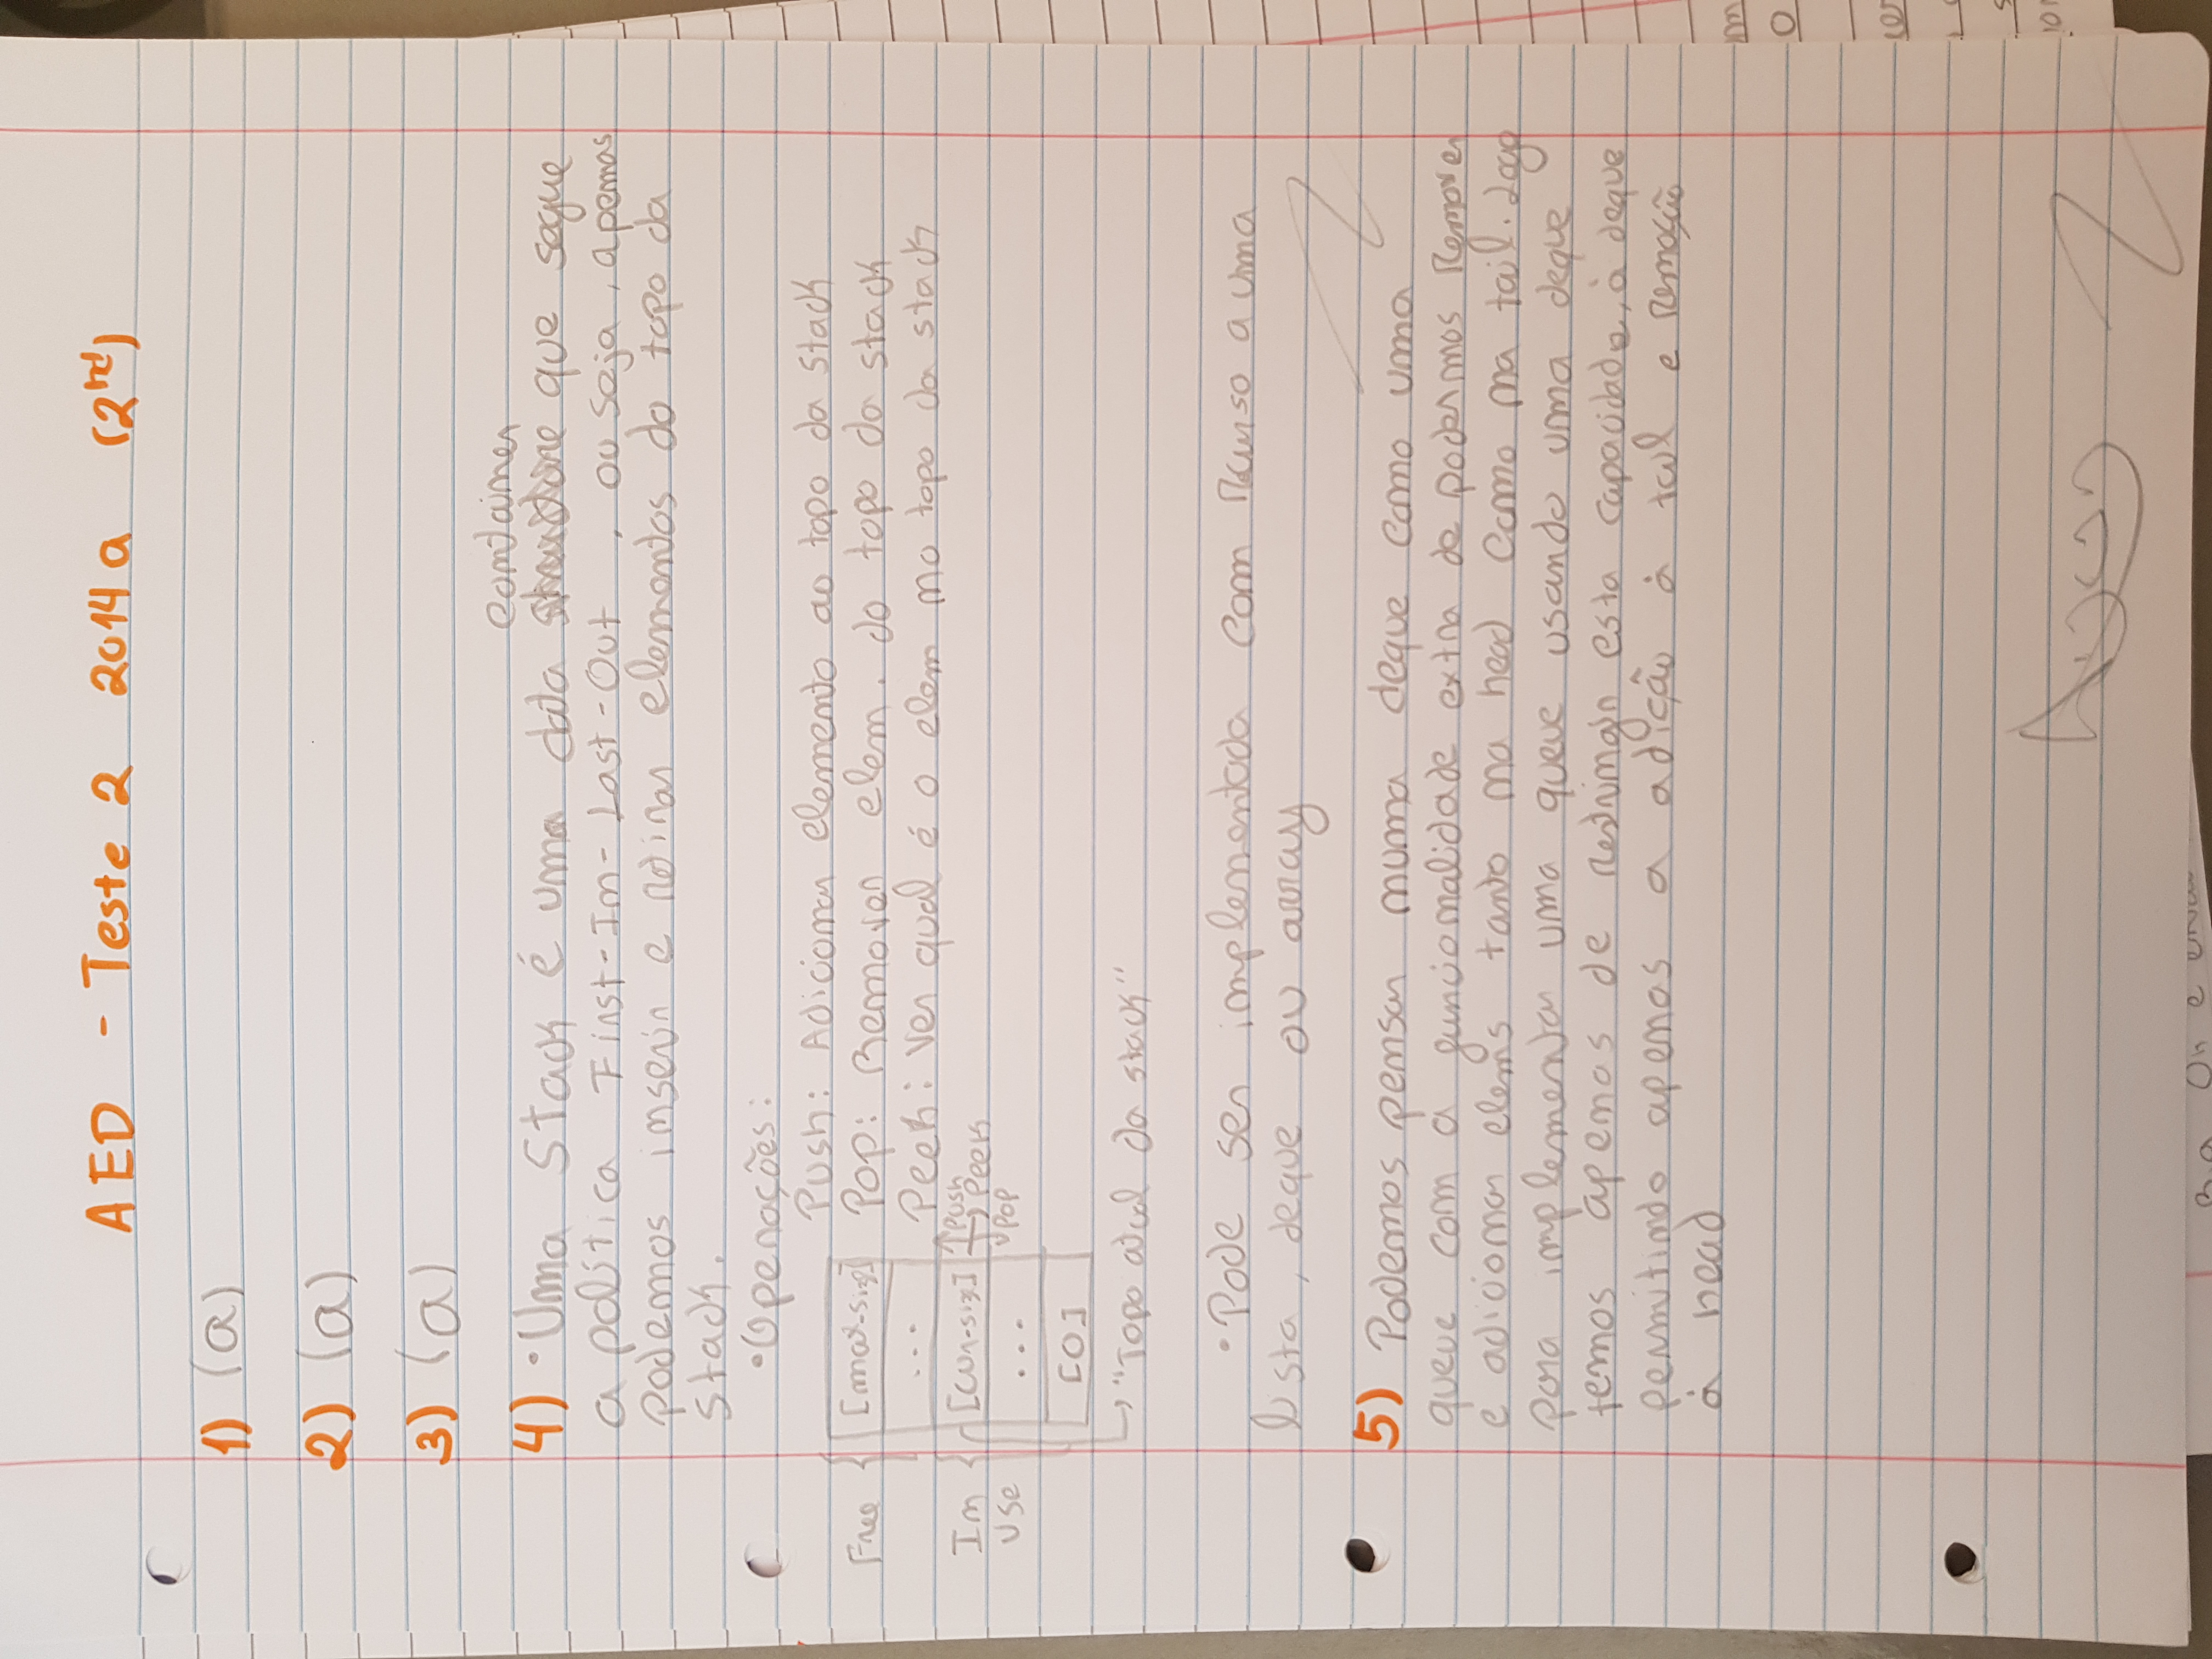 AED - Teste 2 2014a (2nd)
1) (a)
2) (a)
3) (a)
container
4) • Uma Stack é uma data structure que segue
a política First-In-Last-Out, ou seja, apenas
podemos inserir e retirar elementos do topo da
stack.
• Operações:
Push: Adicionar elemento ao topo da stack
Free [max-size] Pop: Remover elem. do topo da stack
... Peek: Ver qual é o elem no topo da stack
In Use [cur-size] Push Peek Pop
...
[0]
"Topo atual da stack"
• Pode ser implementada com recurso a uma
lista, deque ou array
5) Podemos pensar numa deque como uma
queue com a funcionalidade extra de podermos remover
e adicionar elems tanto na head como na tail. Logo
para implementar uma queue usando uma deque
temos apenas de restringir esta capacidade, à deque
permitindo apenas a adição à tail e remoção
à head